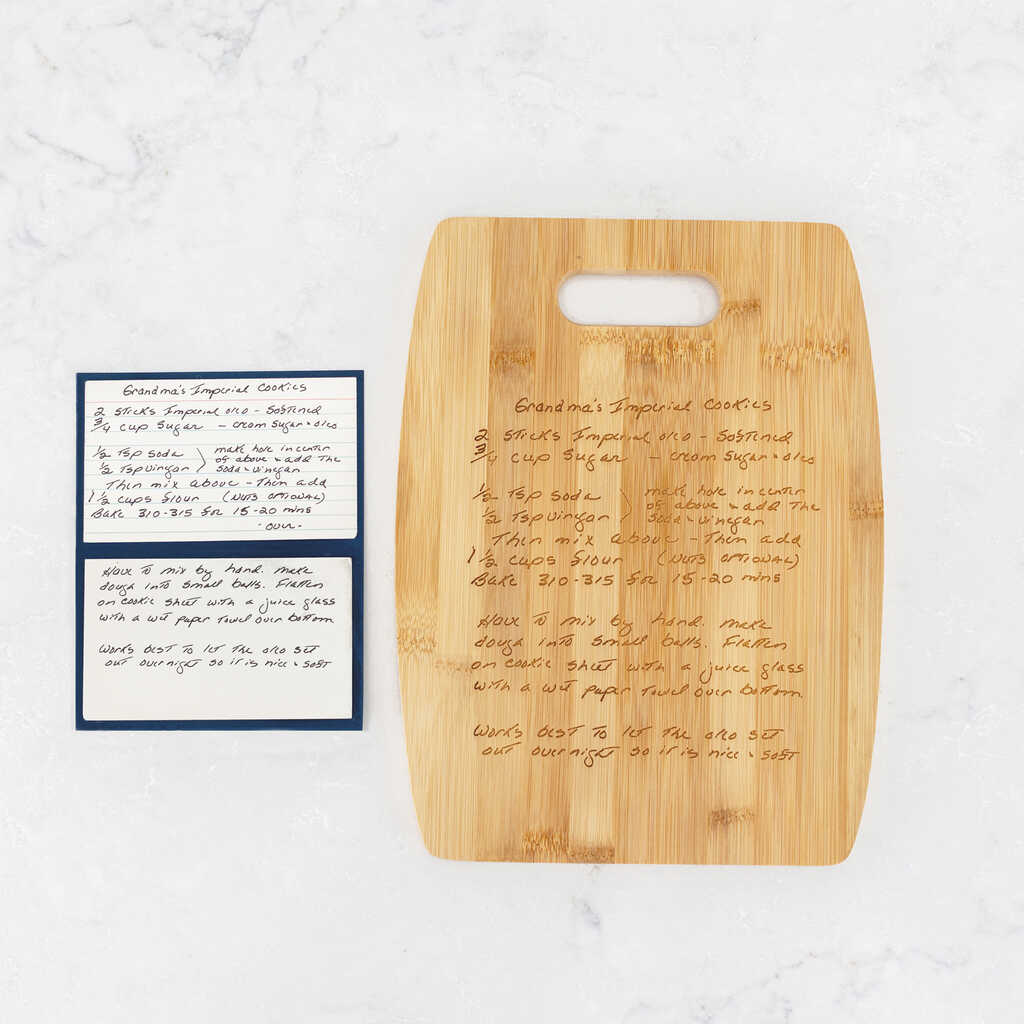 Grandma's Imperial Cookies
2 sticks Imperial oleo - softened
3/4 cup sugar - cream sugar & oleo
1/2 Tsp soda } make hole in center
1/2 Tsp vingar of above & add the
soda & vinegar
Then mix above - Then add
1 1/2 cups flour (NUTS OPTIONAL)
Bake 310-315 for 15-20 mins
- over -
Have to mix by hand. make
dough into small balls. Flatten
on cookie sheet with a juice glass
with a wet paper towel over bottom
Works best to let the oleo set
out overnight so it is nice & soft
Grandma's Imperial Cookies
2 sticks Imperial oleo - softened
3/4 cup sugar - cream sugar & oleo
1/2 Tsp soda } make hole in center
1/2 Tsp vingar of above & add the
soda & vinegar
Then mix above - Then add
1 1/2 cups flour (NUTS OPTIONAL)
Bake 310-315 for 15-20 mins
Have to mix by hand. make
dough into small balls. Flatten
on cookie sheet with a juice glass
with a wet paper towel over bottom
Works best to let the oleo set
out overnight so it is nice & soft